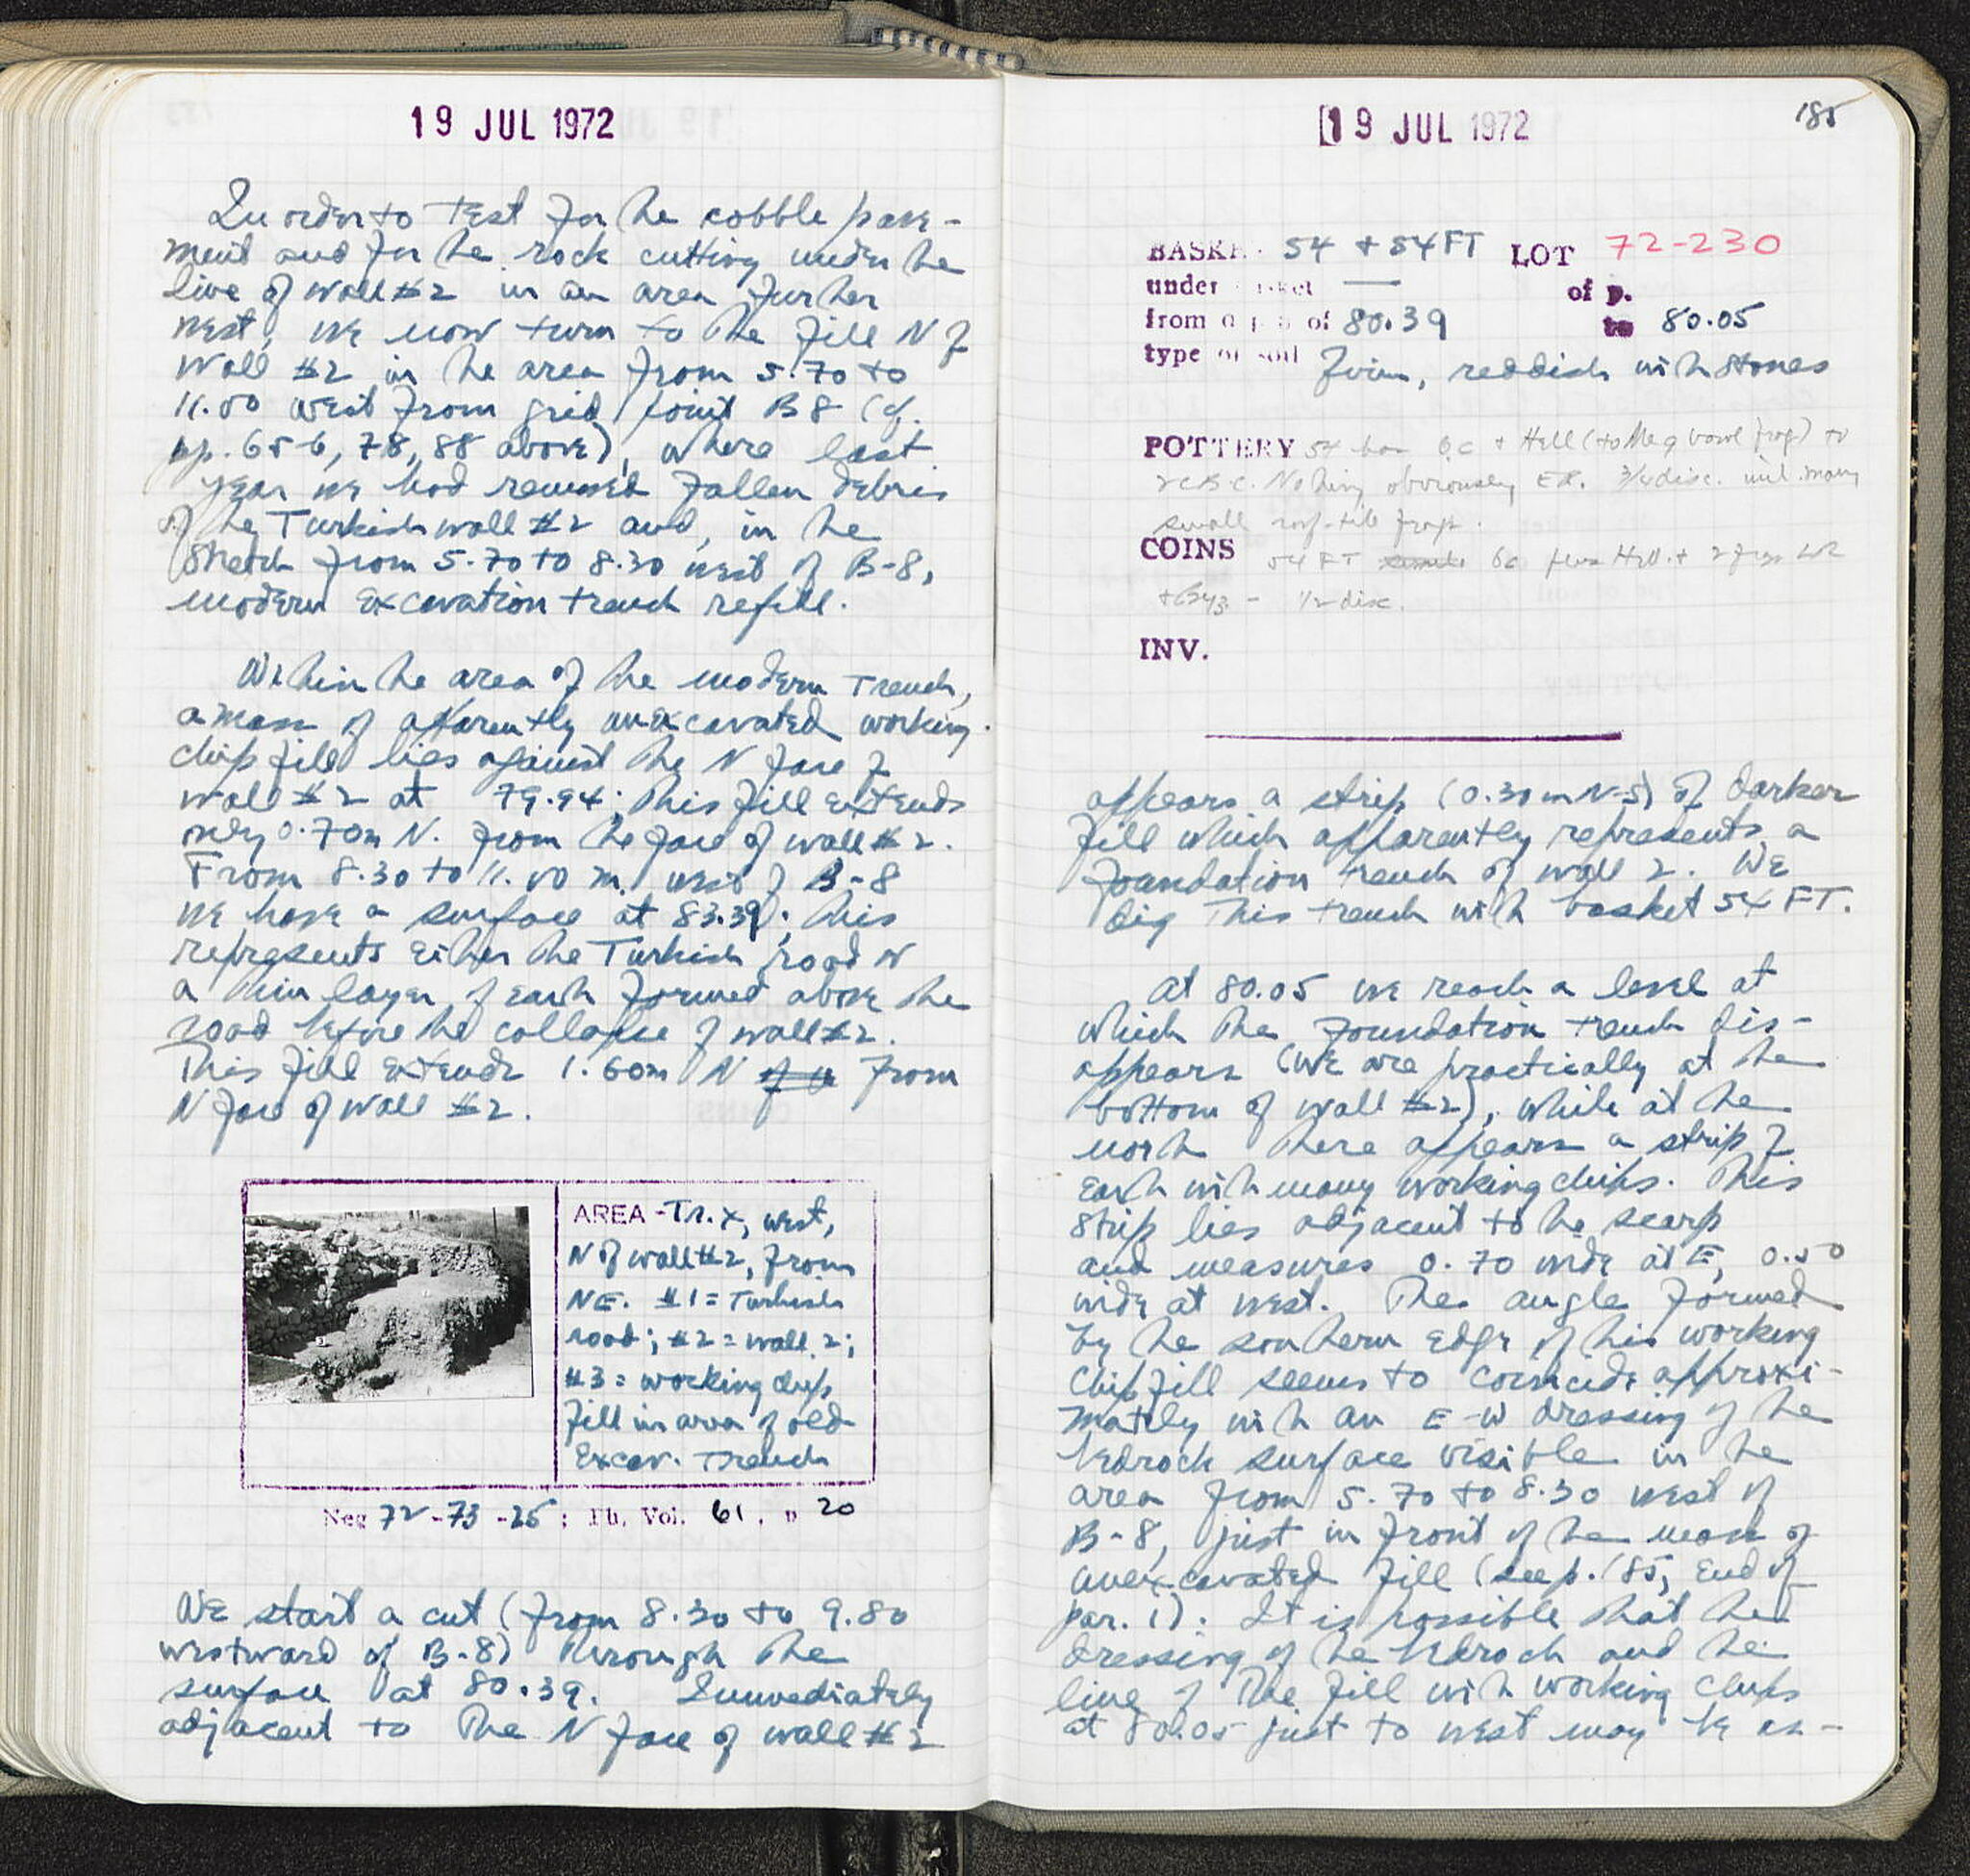 19 JUL 1972
In order to test for the cobble pave-
ment and for the rock cutting under the
line of wall #2 in an area further
west, we now turn to the fill N of
Wall #2 in the area from 5.70 to
11.00 west from grid point B8 (cf.
pp. 65-6, 78, 88 above), where last
year we had removed fallen debris
of the Turkish wall #2 and, in the
stretch from 5.70 to 8.30 west of B-8,
modern excavation trench refill.
Within the area of the modern trench,
a mass of apparently unexcavated working
chip fill lies against the N face of
wall #2 at 79.94; this fill extends
only 0.70m N. from the face of wall #2.
From 8.30 to 11.00 m. west of B-8
we have a surface at 83.39; this
represents either the Turkish road or
a thin layer of earth formed above the
road before the collapse of wall #2.
This fill extends 1.60m N from
N face of wall #2.
AREA - Tr. X, west,
N of wall #2, from
NE. #1 = Turkish
road; #2 = wall 2;
#3 = working chip
fill in area of old
excav. trench
Neg 72-73-26; Ph. Vol. 61, p 20
We start a cut (from 8.30 to 9.80
westward of B-8) through the
surface at 80.39. Immediately
adjacent to the N face of wall #2
19 JUL 1972
185
BASKET 54 + 54FT LOT 72-230
under basket — of p.
from depth of 80.39 to 80.05
type of soil Firm, reddish with stones
POTTERY 54 box 6c + Hell (to Meg bowl frag) to
2c B.C. Nothing obviously ER. 3/4 disc. incl. many
small roof-tile frags.
COINS 54 FT 6c plus Hell. + 2 frags LR
+ Byz - 1/2 disc.
INV.
appears a strip (0.30m N-S) of darker
fill which apparently represents a
foundation trench of wall 2. We
dig this trench with basket 54 FT.
At 80.05 we reach a level at
which the foundation trench dis-
appears (we are practically at the
bottom of wall #2), while at the
north there appears a strip of
earth with many working chips. This
strip lies adjacent to the scarp
and measures 0.70 wide at E, 0.50
wide at west. The angle formed
by the southern edge of this working
chip fill seems to coincide approxi-
mately with an E-W dressing of the
bedrock surface visible in the
area from 5.70 to 8.30 west of
B-8, just in front of the mass of
unexcavated fill (see p. 185, end of
par. 1). It is possible that the
dressing of the bedrock and the
line of the fill with working chips
at 80.05 just to west may be as-